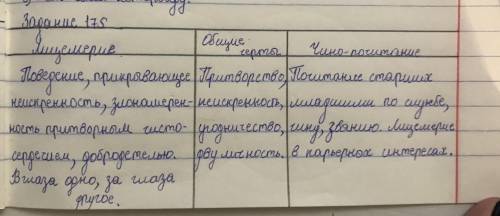 Задание 175
Лицемерие Общие черты Чино-почитание
Поведение, прикрывающее Притворство, Почитание старших
неискренность, злонамерен- неискренность, младшими по службе,
ность притворным чисто- угодничество, чину, званию. Лицемерие
сердечием, добродетелью. двуличность. в карьерных интересах.
В глаза одно, за глаза
другое.